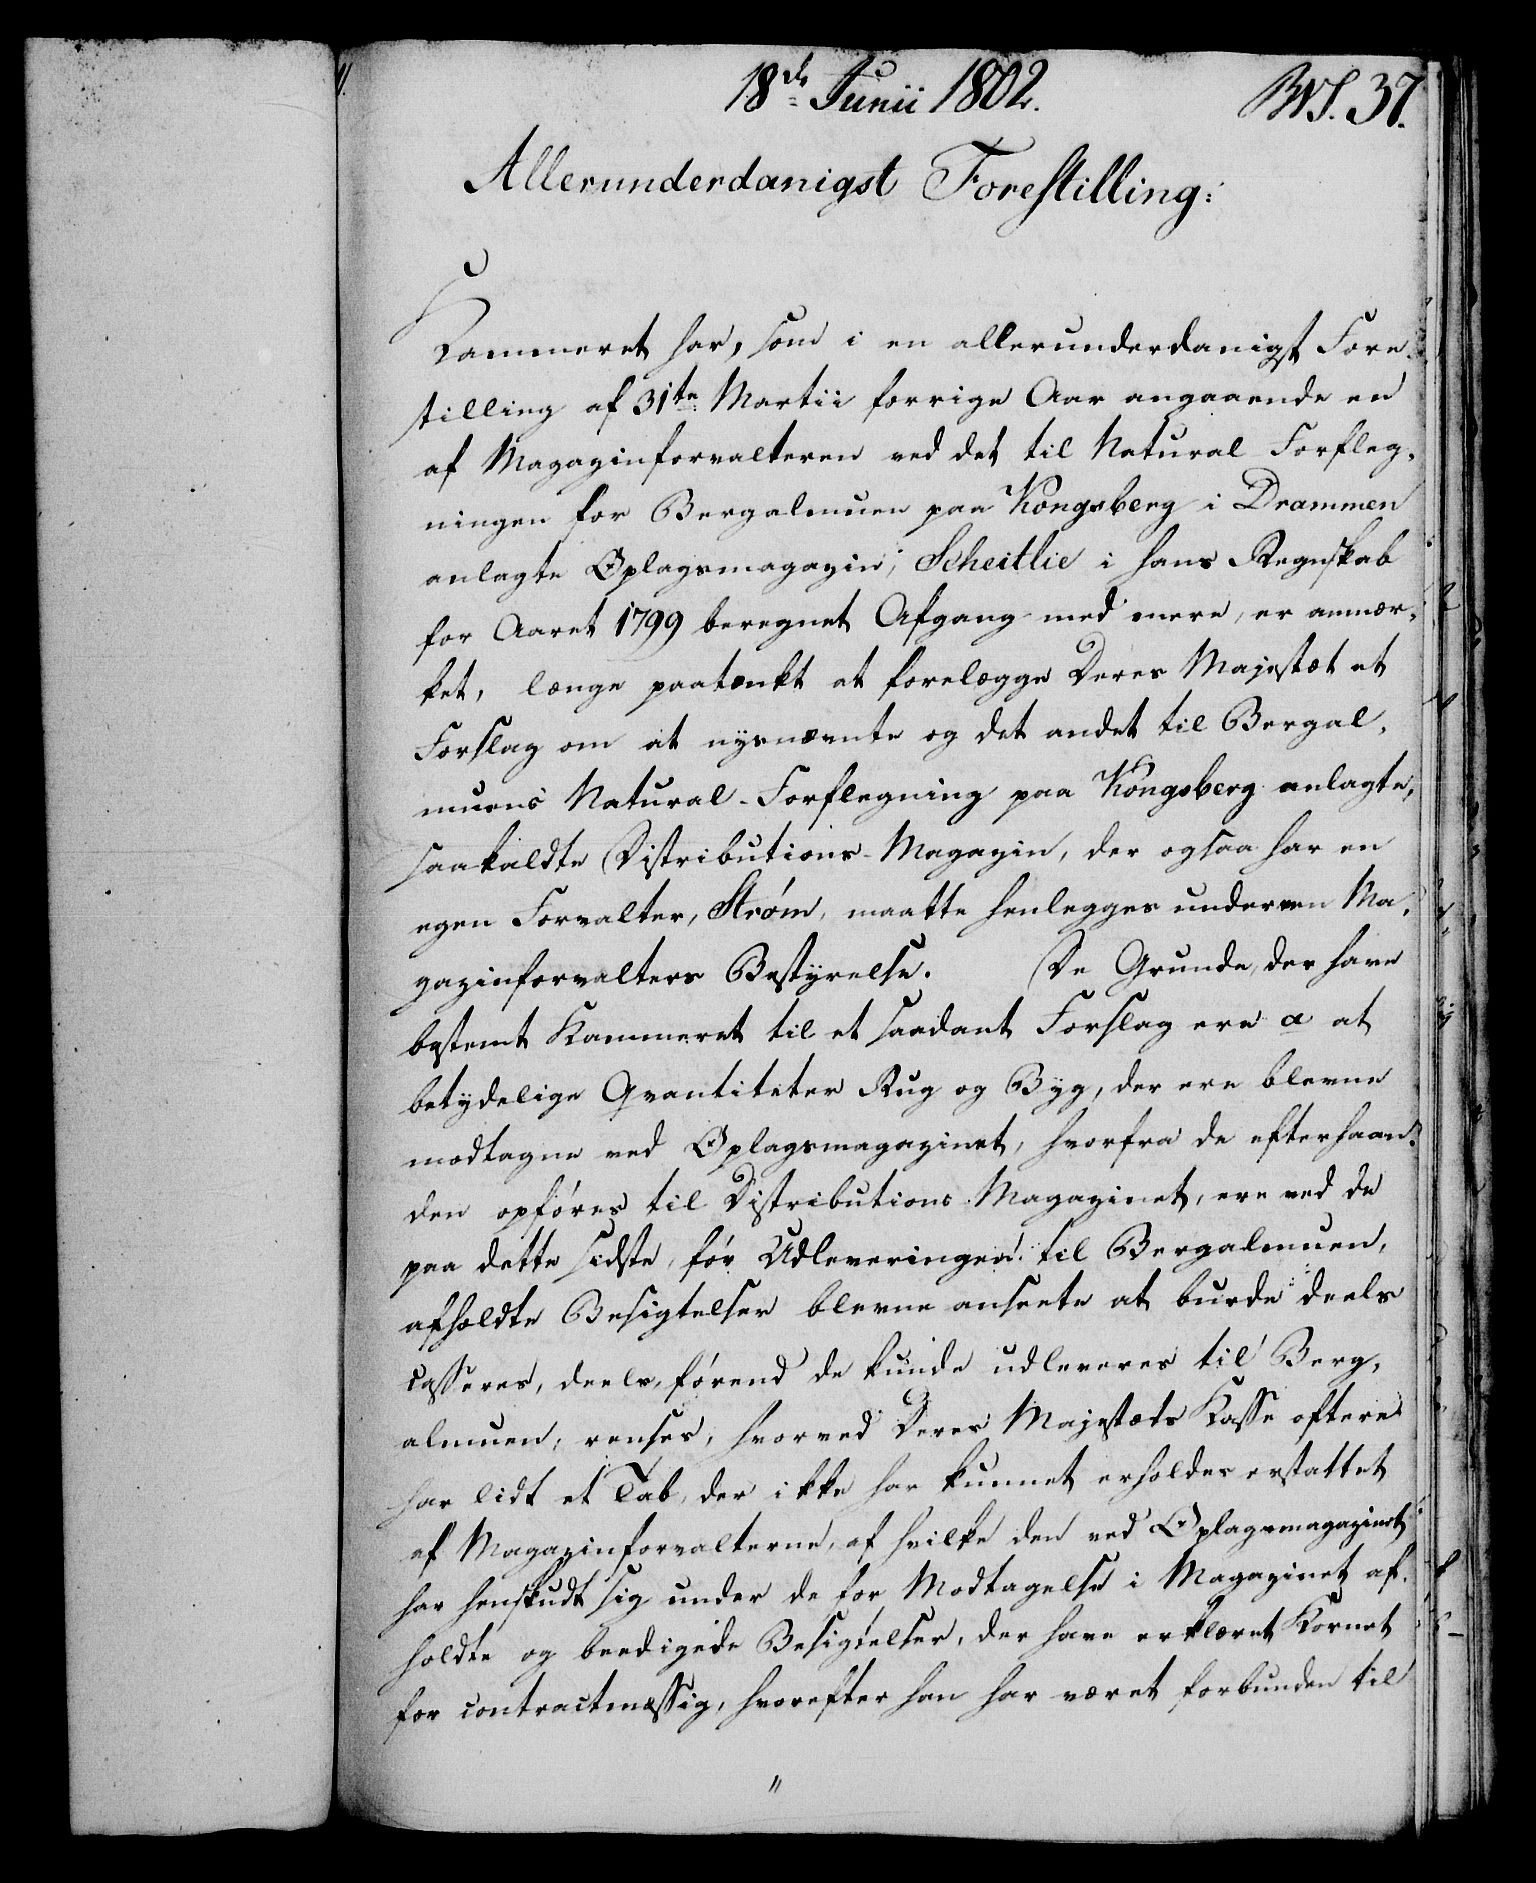 18de Junii 1802.
37.
Allerunderdanigst Forestilling:
Kammeret har, som i en allerunderdanigst Fore-
stilling af 31te Martii forrige Aar angaaende en
af Magazinforvalteren ved det til Natural Forfleg-
ningen for Bergalmuen paa Kongsberg i Drammen
anlagte Oplagsmagazin, Scheitlie i hans Regnskab
for Aaret 1799 beregnet Afgang med mere, er anmær-
ket, længe paatænkt at forelægge Deres Majestæt et
Forslag om at nysnævnte og det andet til Bergal-
muens Natural-Forflegning paa Kongsberg anlagte,
saakaldte Distributions-Magazin, der ogsaa har en
egen Forvalter, Strøm, maatte henlegges under een Ma-
gazinforvalters Bestyrelse. De Grunde, der have
bestemt Kammeret til et saadant Forslag ere a at
betydelige Qvantiteter Rug og Byg, der ere blevne
modtagne ved Oplagsmagazinet, hvorfra de efterhaan-
den opføres til Distributions-Magazinet, ere ved de
paa dette sidste, før Udleveringen til Bergalmuen,
afholdte Besigtelser blevne ansete at burde deels
casseres, deels, førend de kunde udleveres til Berg-
almuen, renses, hvorved Deres Majestæts Kasse oftere
har lidt et Tab, der ikke har kunnet erholdes erstattet
af Magazinforvalterne, af hvilke den ved Oplagsmagazinet
har henskudt sig under de for Modtagelse i Magazinet af-
holdte og beedigede Besigtelser, der have erklæret Kornet
for contractmæssig, hvorefter han har været forbunden til
"